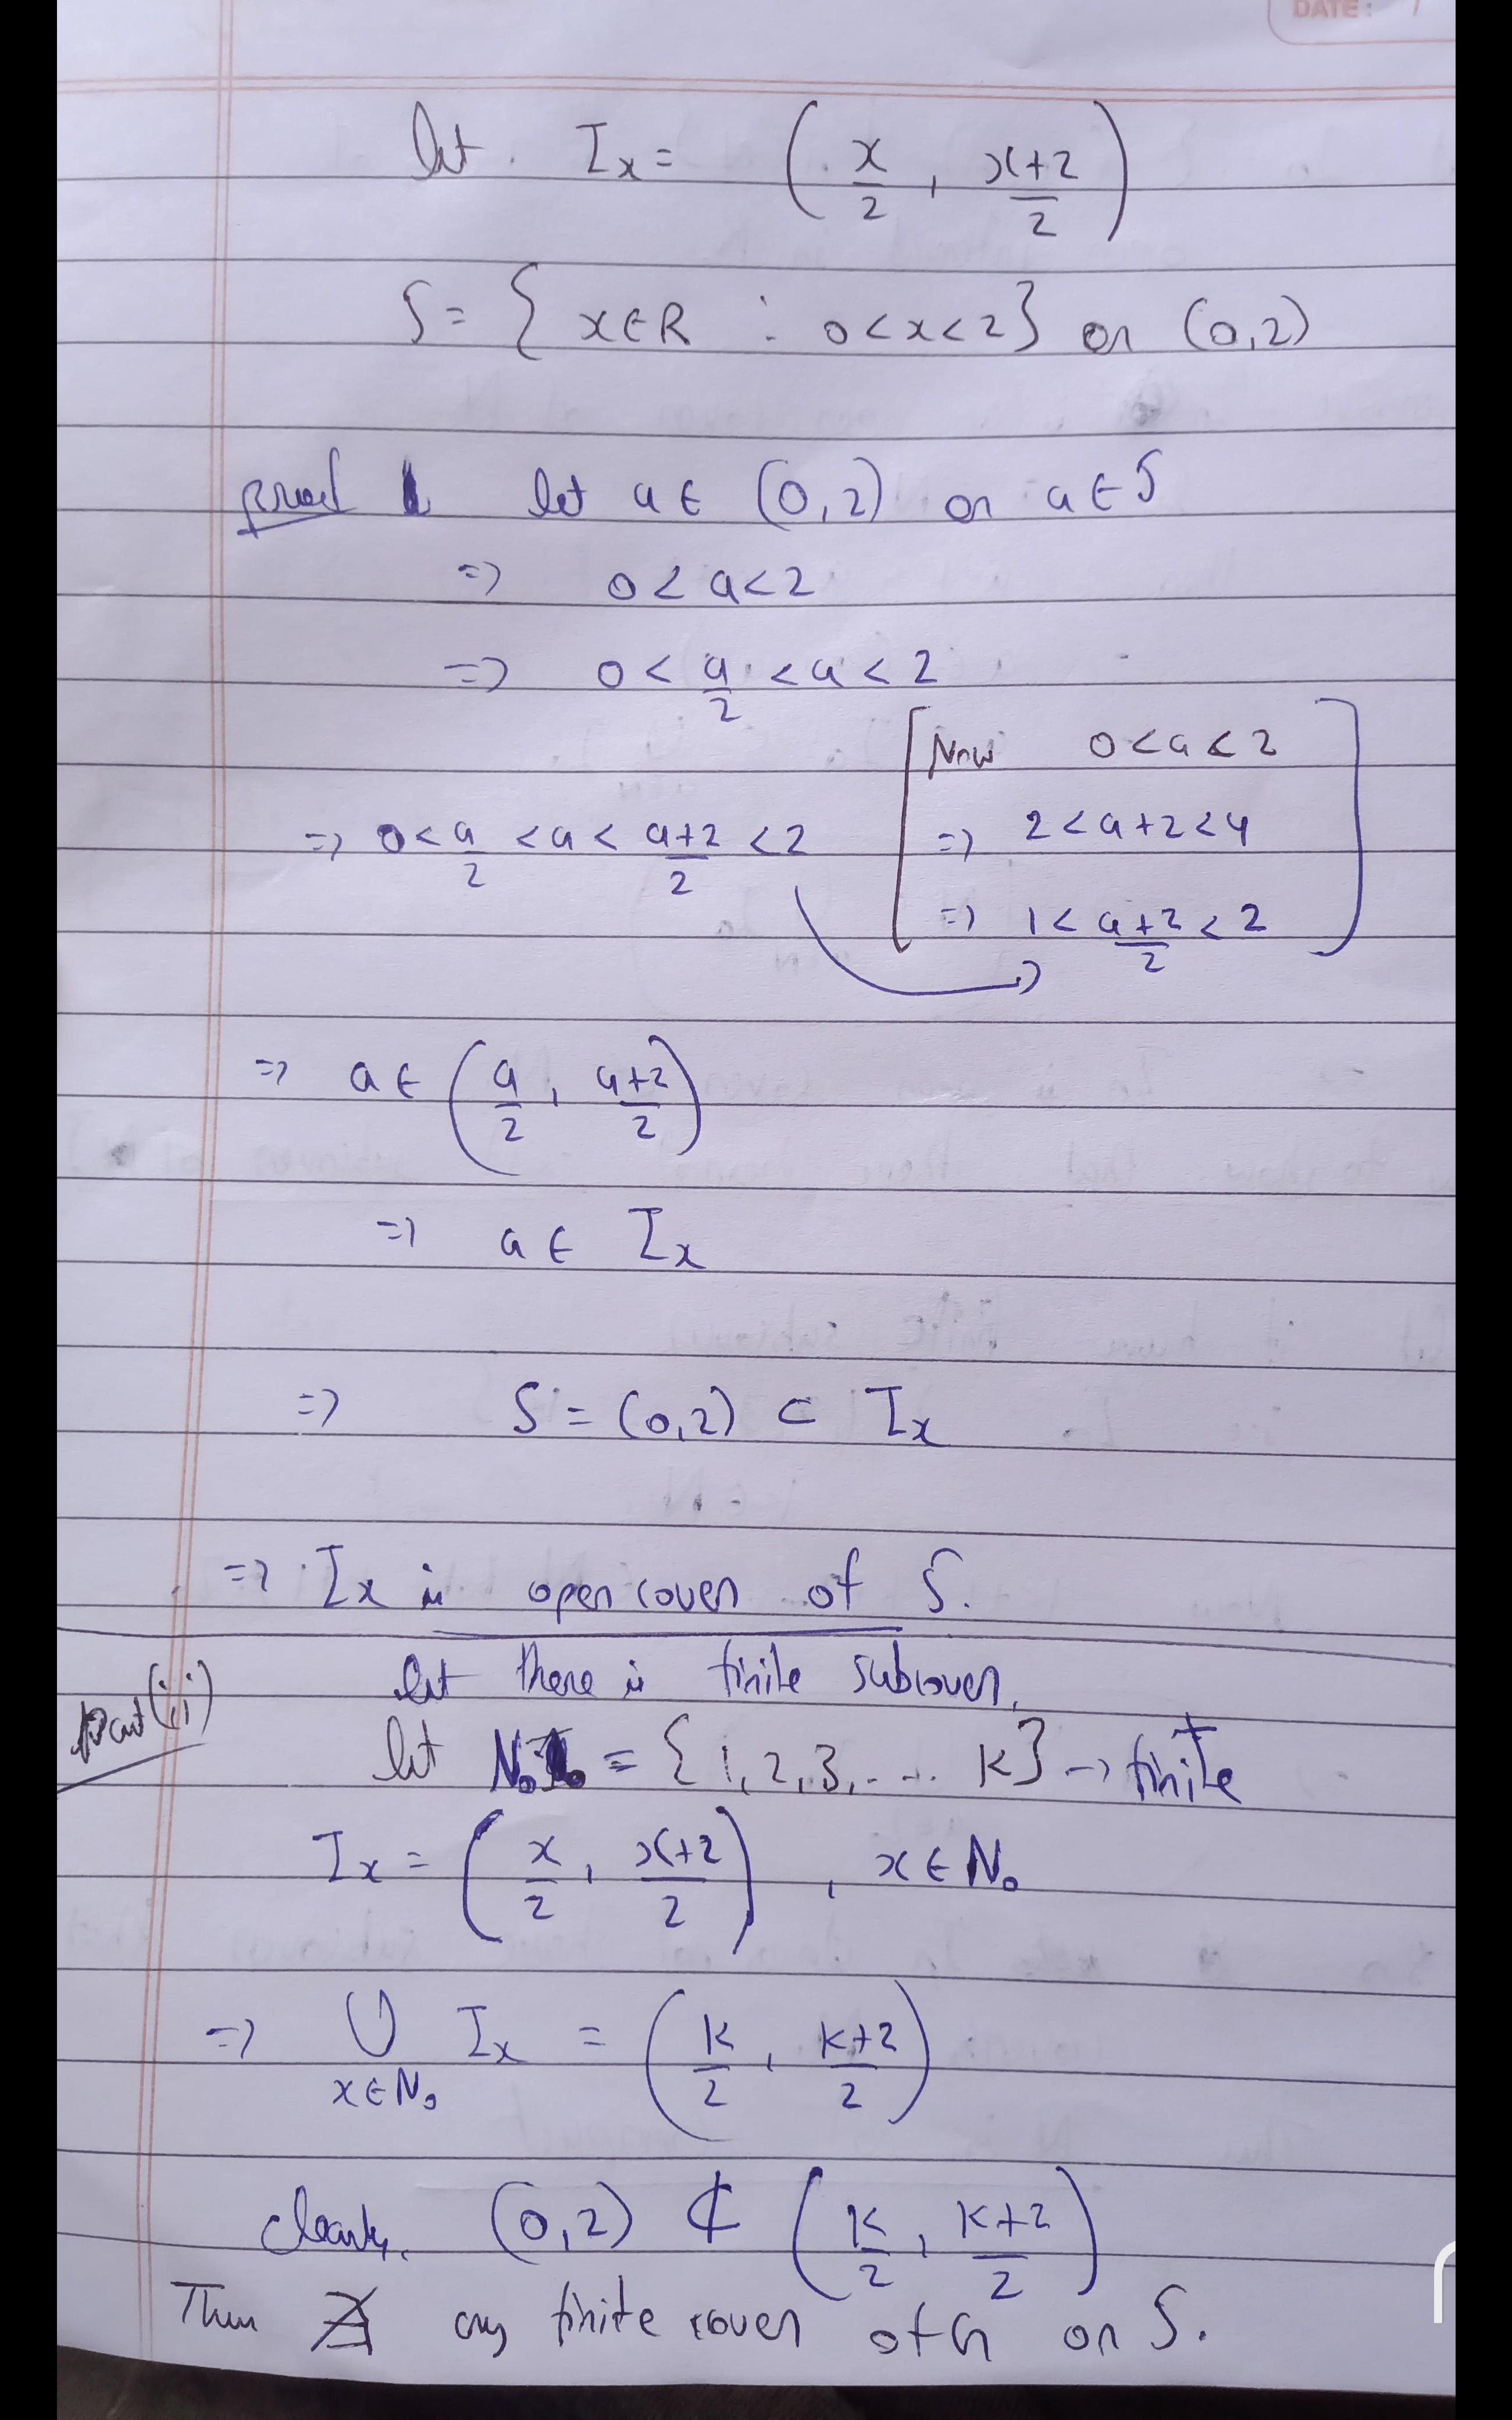 DATE: /
let. Iₓ = (x/2, (x+2)/2)
S = {x∈R : 0<x<2} or (0,2)
proof let a ∈ (0,2) or a∈S
=> 0<a<2
=> 0 < a/2 < a < 2
[Now 0<a<2
=> 0 < a/2 < a < (a+2)/2 < 2
=> 2<a+2<4
=> 1 < (a+2)/2 < 2]
=> a ∈ (a/2, (a+2)/2)
=> a ∈ Iₓ
=> S = (0,2) ⊂ Iₓ
=> Iₓ is open cover of S.
part(ii) let there is finite subcover.
let N₀ = {1,2,3,.... k} → finite
Iₓ = (x/2, (x+2)/2), x∈N₀
=> ∪ Iₓ = (k/2, (k+2)/2)
x∈N₀
Clearly, (0,2) ⊄ (k/2, (k+2)/2)
Then ∄ any finite cover of G on S.